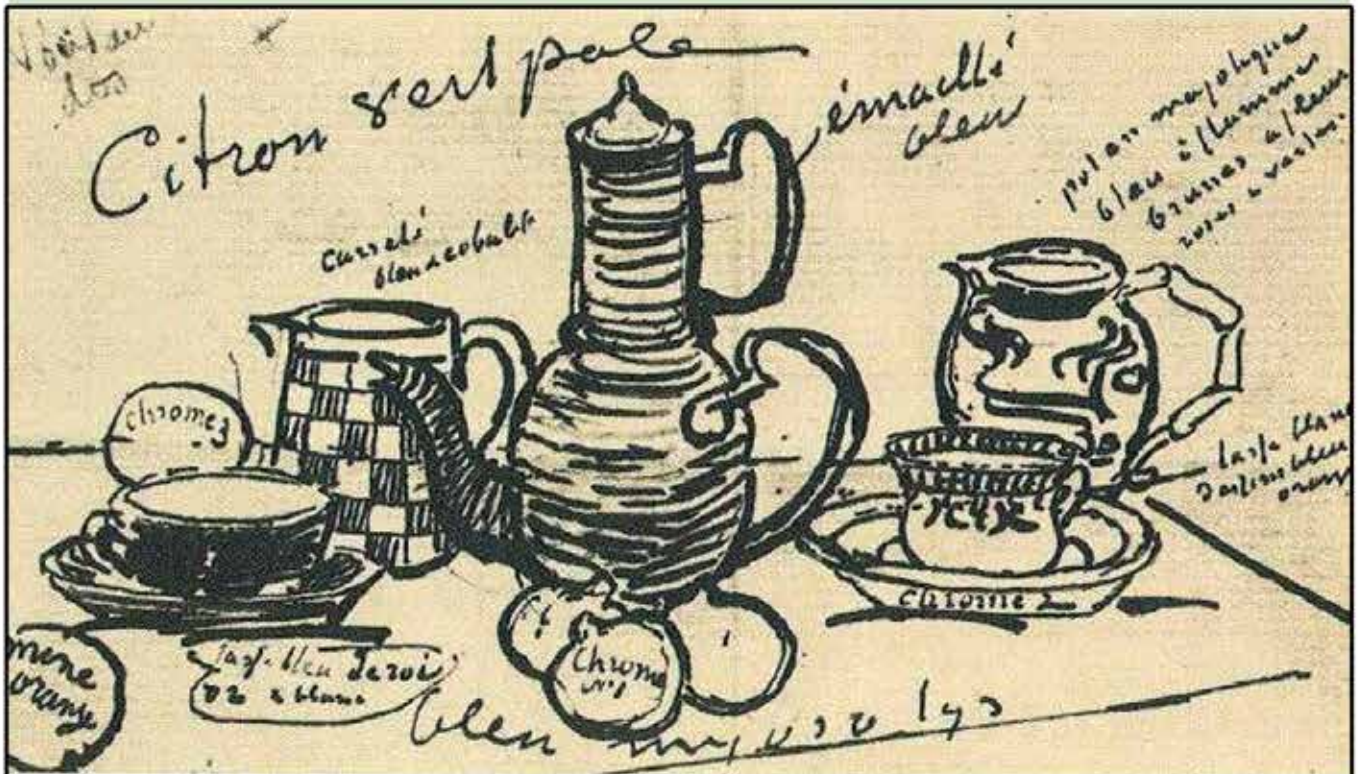 dos
Citron vert pale
émaillé
bleu
pot en majolique
bleu à flammes
brunes
roses & vertes.
carrelé
bleu de cobalt
chrome 3
tasse blanc
bleu
chrome 2
mine
orange
tasse bleu de roi
or & blanc
Chrome
N° 1
bleu myosotys